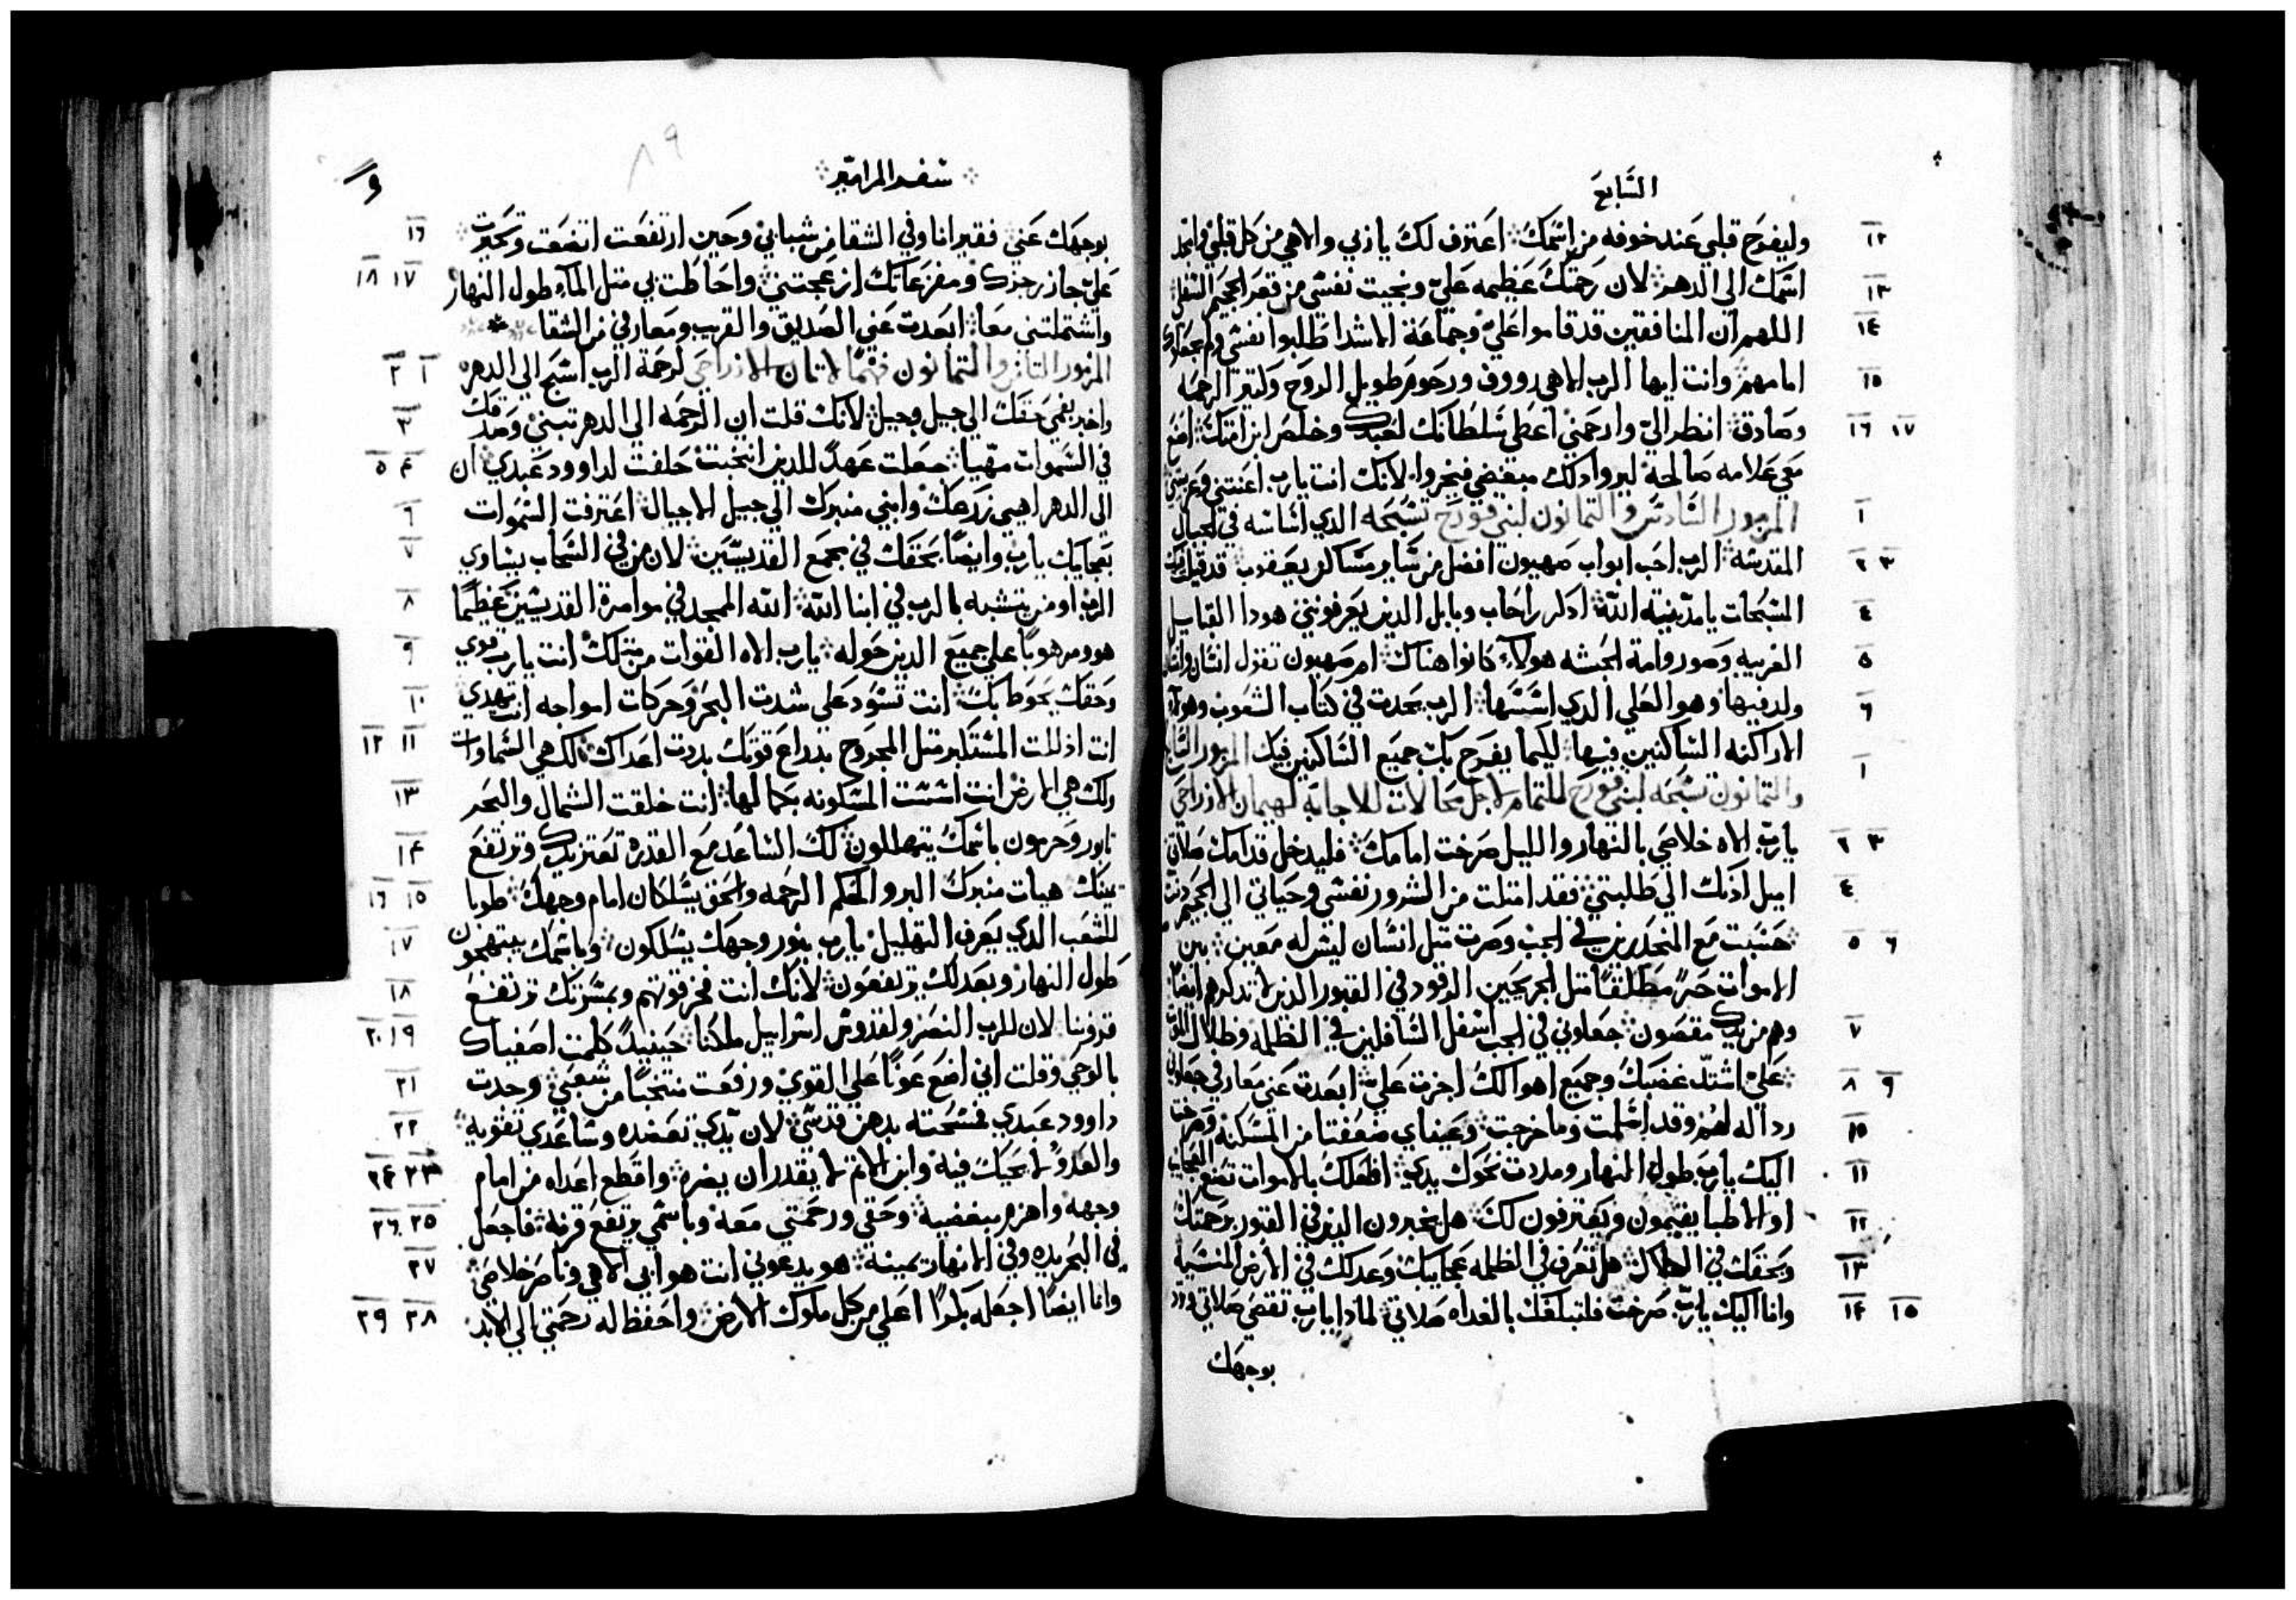 السَّابع
١٢ وليفرح قلبي عند خوفه من اسمك اعترف لك يا ربي والاهي من كل قلبي وامجد
١٣ اسمك الى الدهر لان رحمتك عظيمه علي ونجيت نفسي من قعر الجحيم السفلي
١٤ اللهم ان المنافقين قد قاموا علي وجماعة الاشدا طلبوا نفسي ولم يجعلوك
١٥ امامهم وانت ايها الرب الاهي رووف ورحوم طويل الروح وكتير الرحمه
١٦ ١٧ وصادق انظر الي وارحمني اعطي سلطانك لعبدك وخلص ابن امتك اصنع
معي علامه صالحة ليروا دلك مبغضي فيخزوا لانك انت يارب اعنتني وعزيتني
١ المزمور السادس والتمانون لبني قورح تسبحه الدي اساسه في الجبال
٢ ٣ المقدسه الرب احب ابواب صهيون افضل من ساير مساكن يعقوب قد قيلت فيك
٤ المسبحات يا مدينة الله ادكر راحاب وبابل الدين يعرفونني هودا القبايل
٥ الغريبه وصور وامة الحبشه هولاء كانوا هناك ام صهيون تقول انسان وانسان
٦ ولد فيها وهو العلي الدي اسسها الرب يحدت في كتاب الشعوب وهولاء
الاراكنه الساكنين فيها ليكما يفرح بك جميع الساكنين فيك المزمور السابع
١ والتمانون تسبحه لبني قورح للتمام لاجل محالات للاجابه لهيمان الازراحي
٢ ٣ يارب الاه خلاصي بالنهار والليل صرخت امامك فليدخل قدامك صلاتي
٤ اميل ادنك الي طلبتي فقد امتلت من الشرور نفسي وحياتي الى الجحيم دنت
٥ ٦ حسبت مع المنحدرين في الجب وصرت متل انسان ليس له معين بين
الاموات حرًا مطلقًا متل الجريحين الرقود في القبور الدين لا تدكرهم ايضًا
٧ وهم من يدك مقصون جعلوني في الجب اسفل السافلين في الظلمه وظلال الموت
٨ ٩ علي اشتد غضبك وجميع اهوالك اجزت علي ابعدت عني معارفي جعلوني
١٠ ردالة لهم وقد اسلمت وما خرجت وعيناي ضعفتا من المسكنه وصرخت
١١ اليك يارب طول النهار ومددت نحوك يدي افلعلك بالاموات تصنع العجايب
١٢ او الاطبا يقيمون ويعترفون لك هل يخبرون الدين في القبور برحمتك
١٣ وبحقك في الهلاك هل تعرف في الظلمه عجايبك وعدلك في الارض المنسيه
١٤ ١٥ وانا اليك يارب صرخت فلتبلغك بالغداه صلاتي لمادا يارب تقصي صلاتي وترد
بوجهك
سفر المزامير
٨٩
١٦ بوجهك عني فقير انا وفي الشقا من شبابي وحين ارتفعت اتضعت وتحيرت
١٧ ١٨ علي جاز رجزك ومفزعاتك ازعجتني واحاطت بي متل الماء طول النهار
واشتملتني معا ابعدت عني الصديق والقريب ومعارفي من الشقا
١ ٢ المزمور التامن والتمانون فهمًا لاتان الازراحي لرحمة الرب اسبح الى الدهر
٣ واخبر بفمي حقك الى جيل وجيل لانك قلت ان الرحمه الى الدهر تبني وصدقك
٤ ٥ في السموات مهيا جعلت عهدًا للدين انتخبت حلفت لداوود عبدي ان
٦ الى الدهر اهيي زرعك وابني منبرك الى جيل الاجيال اعترفت السموات
٧ بعجايبك يارب وايضًا بحقك في مجمع القديسين لان من في السحاب يساوي
٨ الرب او من يتشبه بالرب في ابنا الله الله الممجد في موامرة القديسين عظيمًا
٩ هو ومرهوبًا على جميع الدين حوله يارب الاه القوات من متلك انت يارب قوي
١٠ وحقك يحوط بك انت تسود على شدت البحر وحركات امواجه انت تهدي
١١ ١٢ انت اذللت المستكبر متل المجروح بدراع قوتك بددت اعداك لك هي السماوات
١٣ ولك هي الارض انت اسست المسكونه بكمالها انت خلقت الشمال والبحر
١٤ تابور وحرمون باسمك يتهللون لك الساعد مع القدرة تعتز يدك وترتفع
١٥ ١٦ يمينك هيات منبرك البر والحكم الرحمه والحق يسلكان امام وجهك طوبا
١٧ للشعب الدي يعرف التهليل يارب بنور وجهك يسلكون وباسمك يبتهجون
١٨ طول النهار وبعدلك يرتفعون لانك انت فخر قوتهم وبمسرتك ترتفع
١٩ ٢٠ قروننا لان للرب النصر ولقدوس اسراييل ملكنا حينيدٍ كلمت اصفياك
٢١ بالوحي وقلت اني اضع عونًا على القوي ورفعت منتخبًا من شعبي وجدت
٢٢ داوود عبدي فمسحته بدهن قدسي لان يدي تعضده وساعدي تقويه
٢٣ ٢٤ والعدو لا يحيك فيه وابن الاتم لا يقدر ان يضره واقطع اعداه من امام
٢٥ ٢٦ وجهه واهزم مبغضيه وحقي ورحمتي معه وباسمي يرتفع قرنه فاجعل
٢٧ في البحر يده وفي الانهار يمينه هو يدعوني انت هو ابي الاهي وناصر خلاصي
٢٨ ٢٩ وانا ايضًا اجعله بكرًا اعلى من كل ملوك الارض واحفظ له رحمتي الى الابد